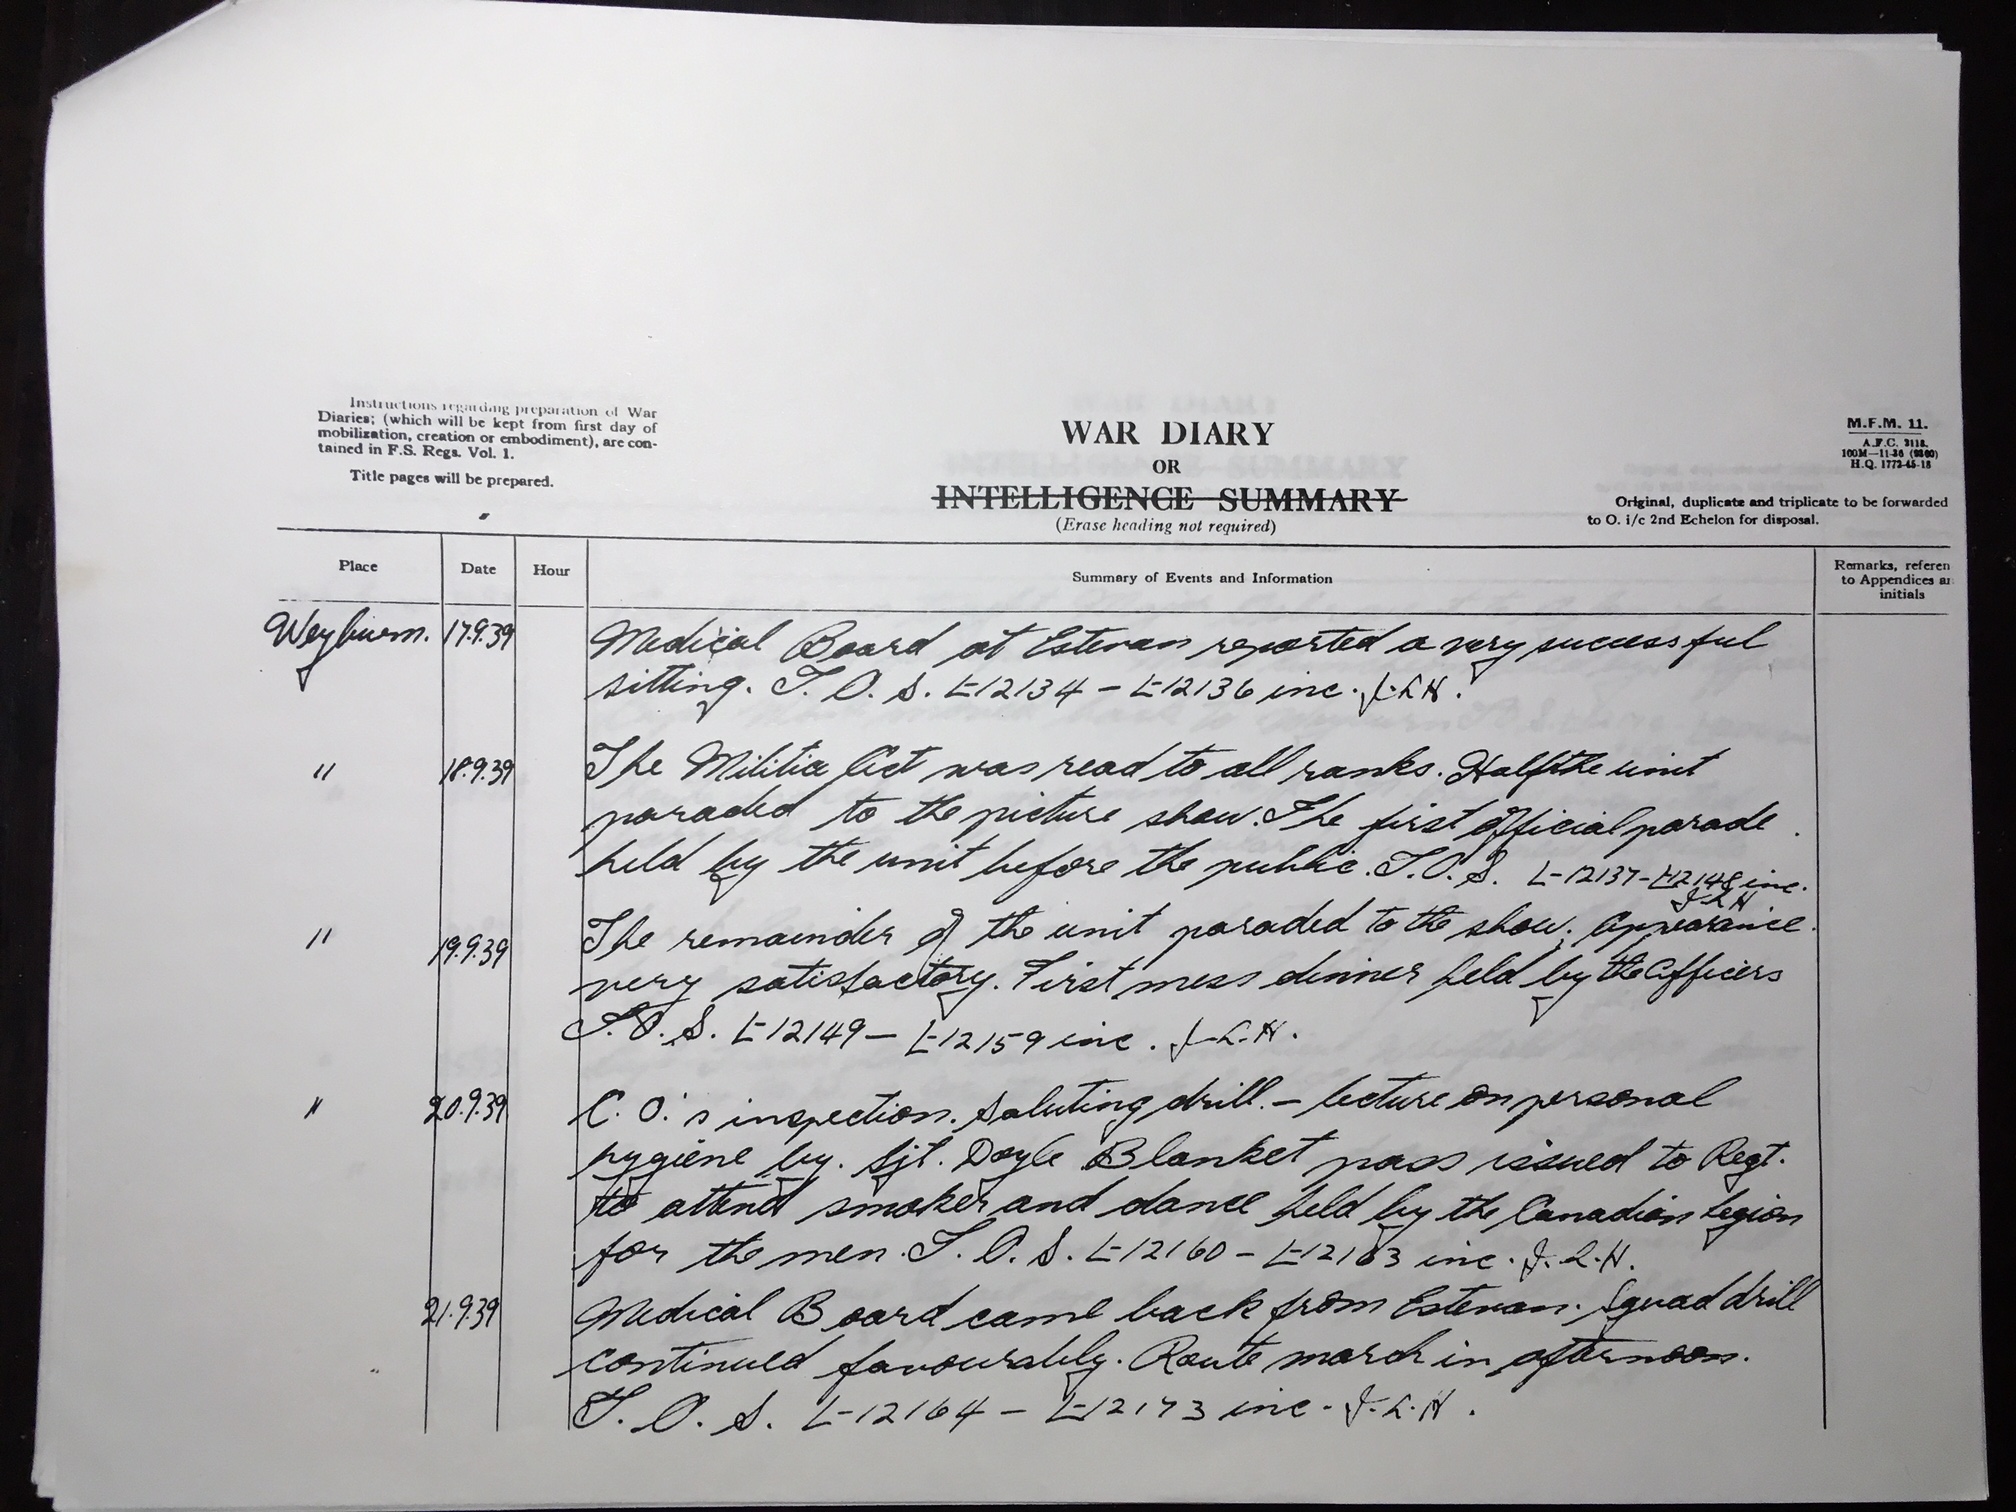 Instructions regarding preparation of War
Diaries; (which will be kept from first day of
mobilization, creation or embodiment), are con-
tained in F.S. Regs. Vol. 1.
Title pages will be prepared.
WAR DIARY
OR
INTELLIGENCE SUMMARY
(Erase heading not required)
M.F.M. 11.
A.F.C. 2118.
100M—11-36 (9360)
H.Q. 1772-45-18
Original, duplicate and triplicate to be forwarded
to O. i/c 2nd Echelon for disposal.
Place Date Hour Summary of Events and Information Remarks, referen
to Appendices a
initials
Weyburn. 17.9.39 Medical Board at Estevan reported a very successful
sitting. T. O. S. L-12134 – L-12136 inc. J.L.H.
" 18.9.39 The Militia Act was read to all ranks. Half the unit
paraded to the picture show. The first official parade
held by the unit before the public. T.O.S. L-12137-L-12148 inc.
J.L.H
" 19.9.39 The remainder of the unit paraded to the show. Appearance
very satisfactory. First mess dinner held by the Officers
T.O.S. L-12149 – L-12159 inc. J.L.H.
" 20.9.39 C. O.'s inspection. Saluting drill. – lecture on personal
hygiene by. Sjt. Doyle Blanket pass issued to Regt.
to attend smoker and dance held by the Canadian Legion
for the men. T. O. S. L-12160 – L-12163 inc. J.L.H.
21.9.39 Medical Board came back from Estevan. Squad drill
continued favourably. Route march in afternoon.
T. O. S. L-12164 – L-12173 inc. J.L.H.